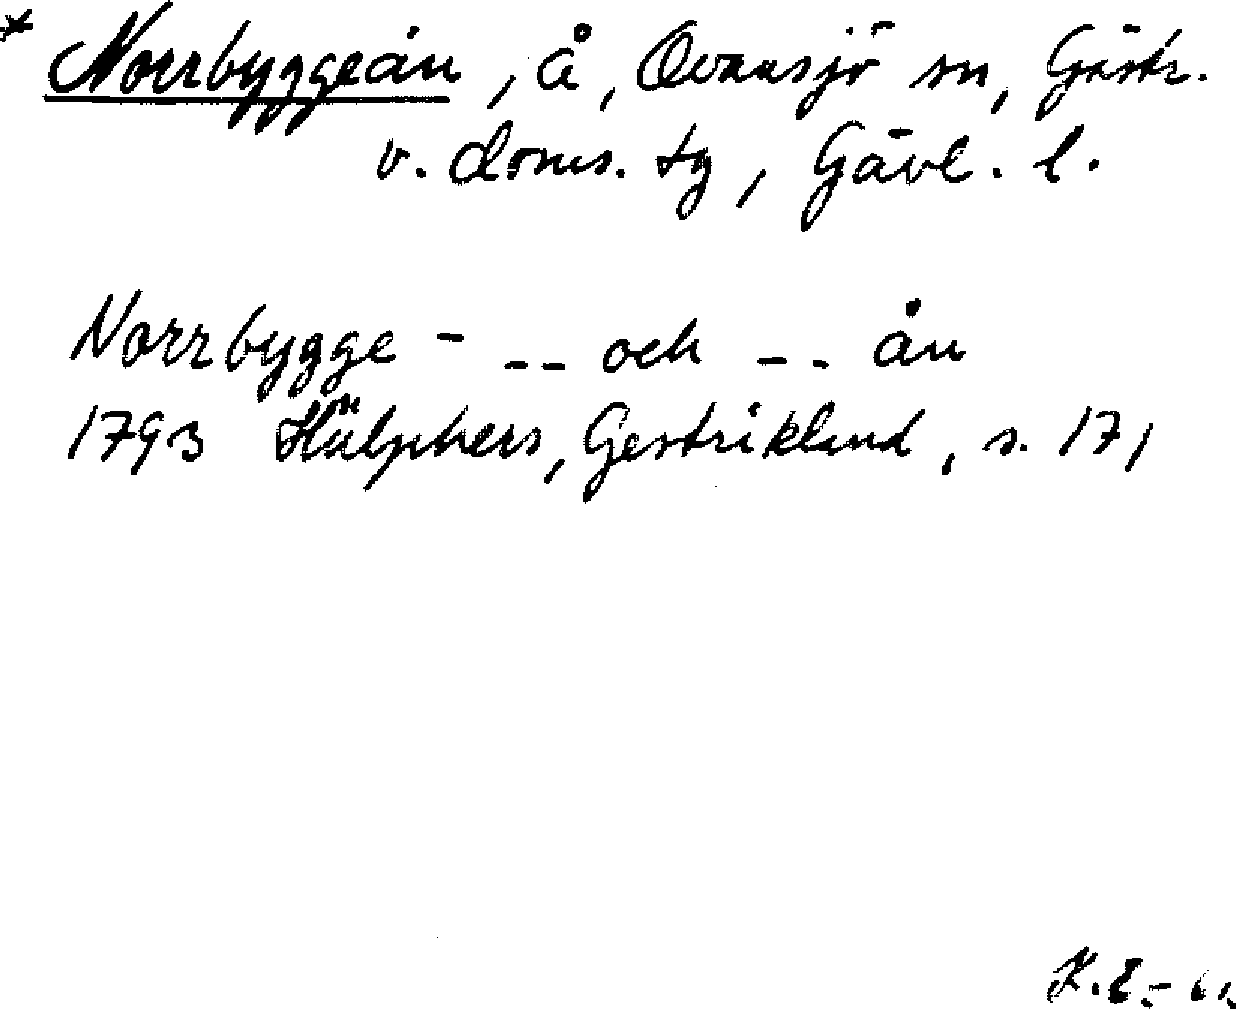 * Norrbyggeån, å, Ovansjö sn, Gästr.
v. doms. tg, Gävl. l.
Norrbygge - -- och -- ån
1793 Hülphers, Gestrikland, s. 171